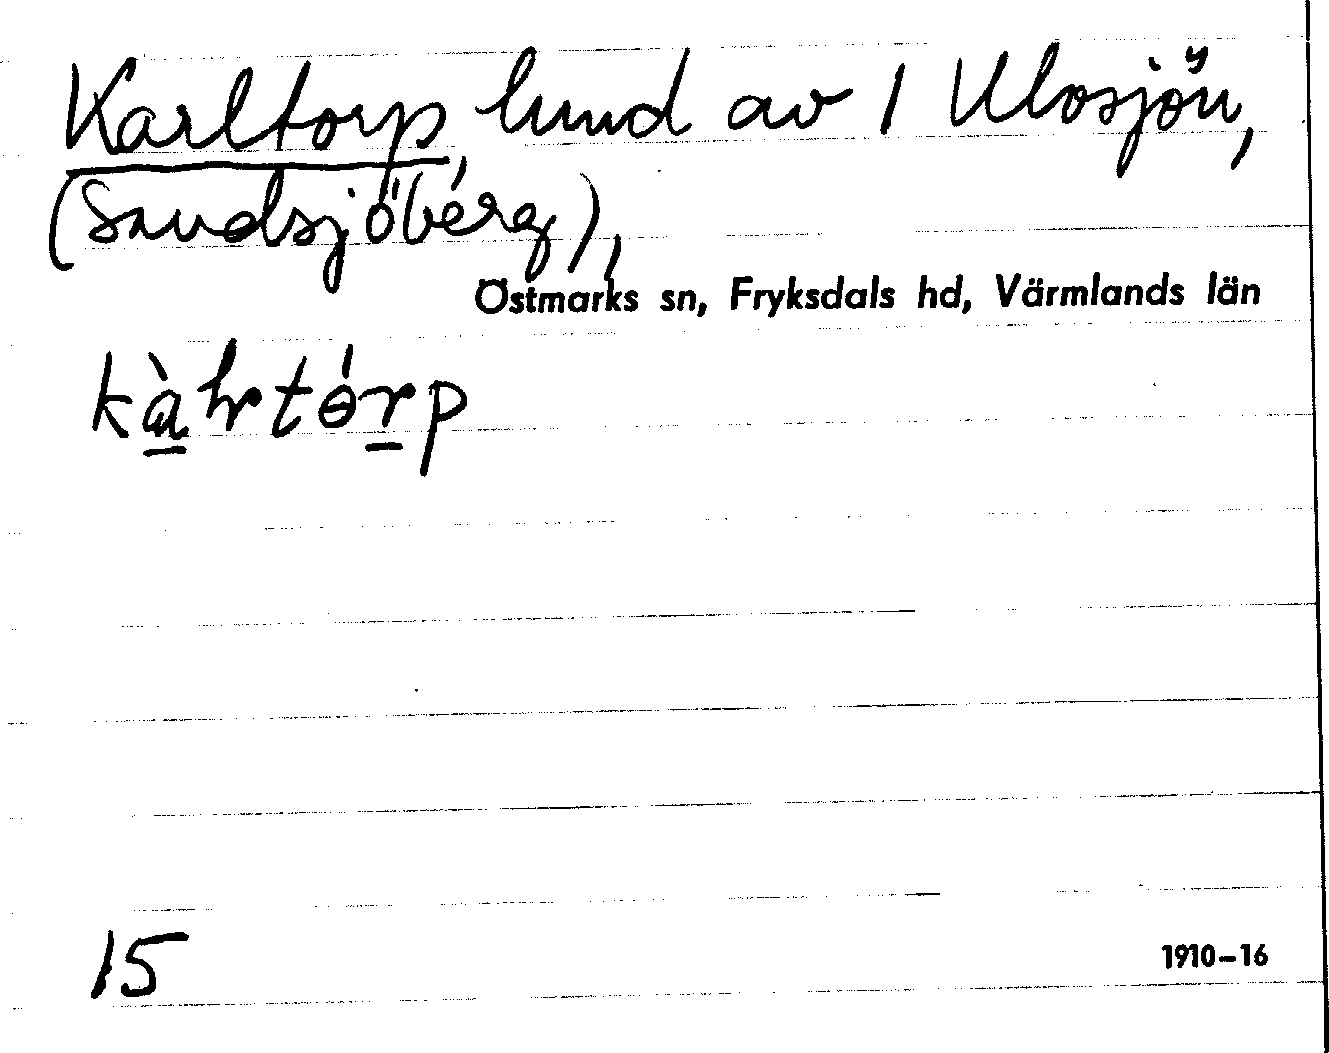 Karltorp, lund av 1 Ulvsjön,
(Sandsjöberg),
Östmarks sn, Fryksdals hd, Värmlands län
15
1910–16